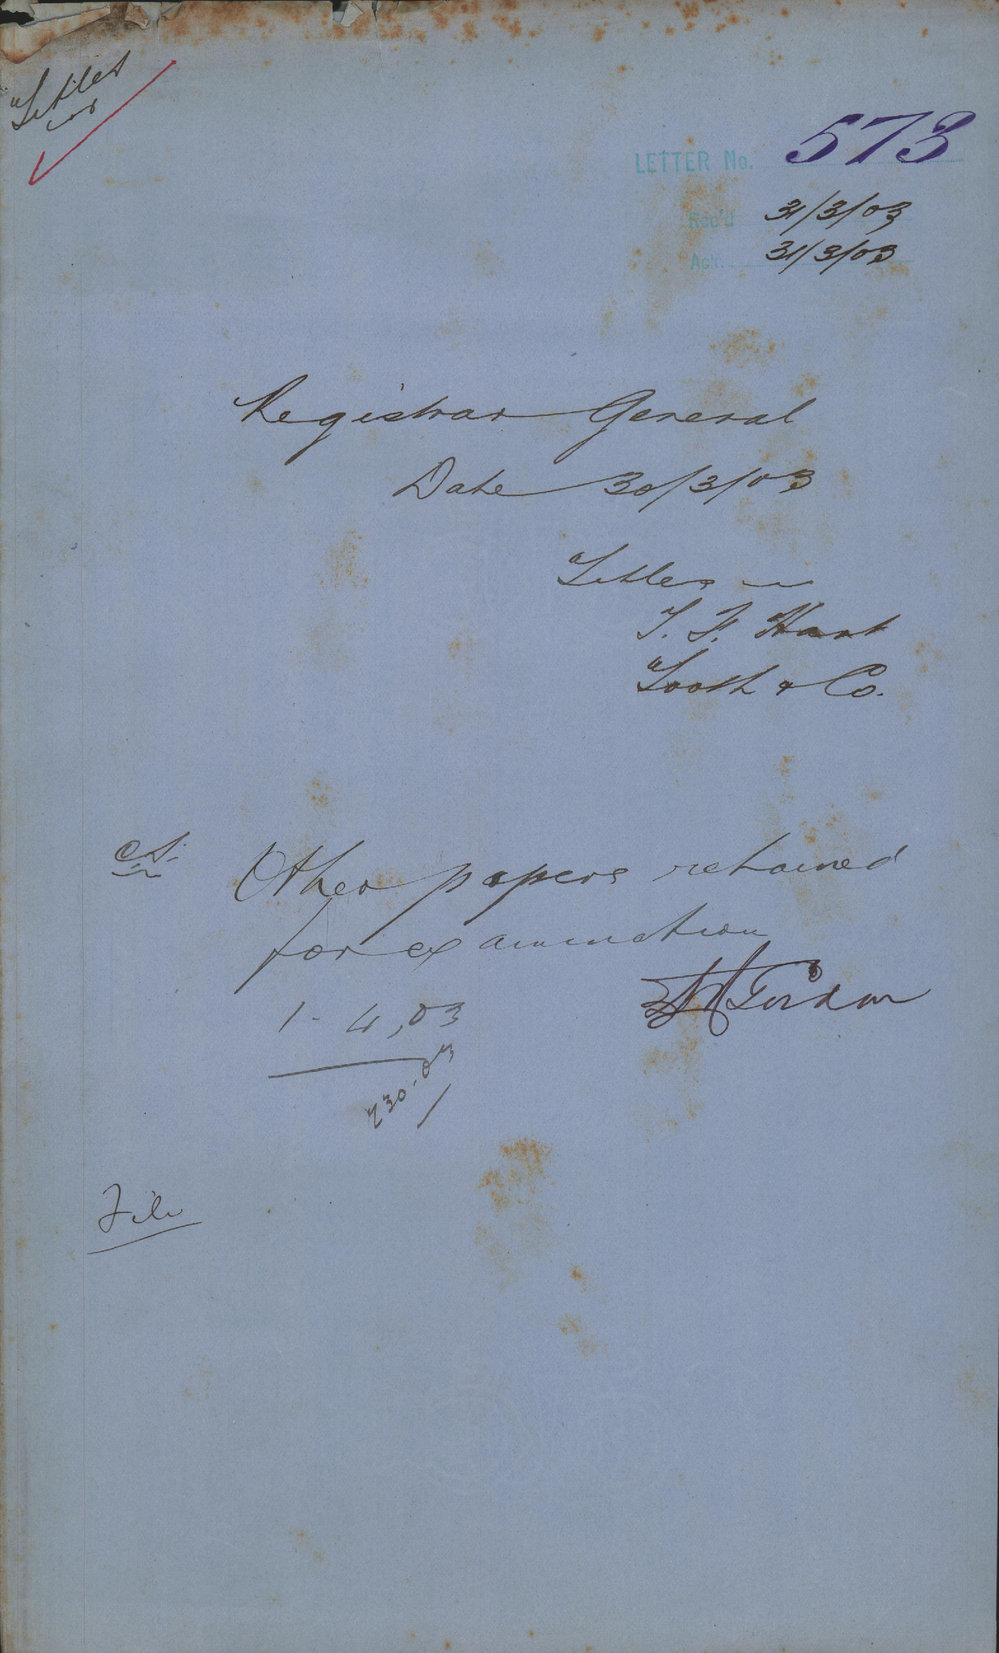 Titles
LETTER No. 573
Rec'd 31/3/03
Ack. 31/3/03
Registrar General
Date 30/3/03
Titles
T. F. Hart
Tooth & Co.
Other papers retained
for examination
1-4,03
File